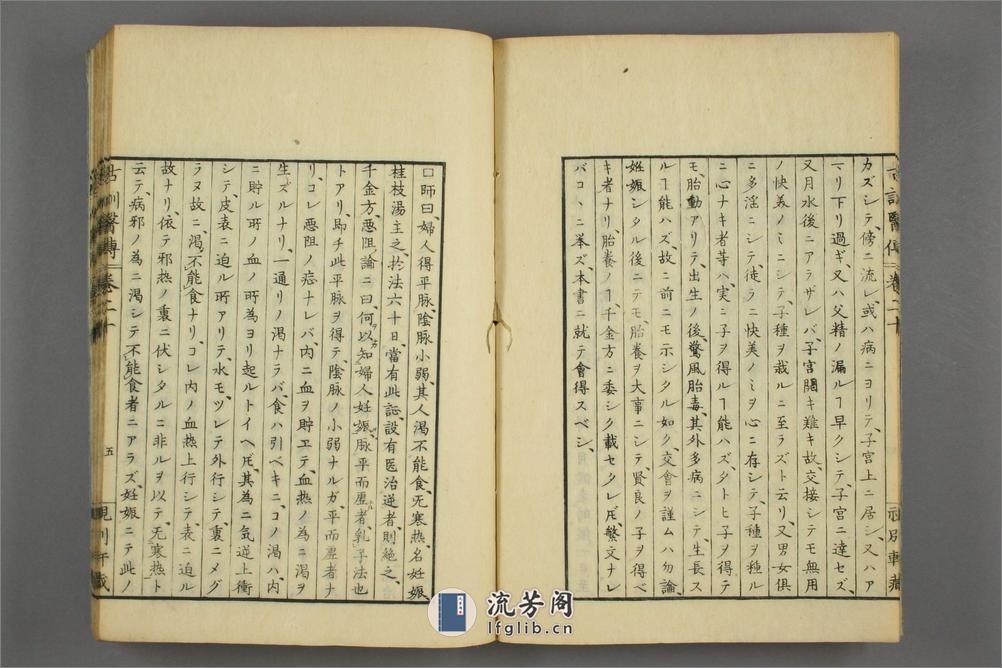 カズシテ、傍ニ流レ或ハ病ニヨリテ、子宮上ニ居シ、又ハア
マリ下リ過ギ、又ハ父精ノ漏ルヿ早クシテ、子宮ニ達セズ、
又月水後ニアラザレバ、子宮開キ難キ故、交接シテモ無用
ノ快美ノミニシテ、子種ヲ栽ルニ至ラズト云リ、又男女俱
ニ多淫ニシテ、徒ラニ快美ノミヲ心ニ存シテ、子種ヲ種ル
ニ心ナキ者等ハ、実ニ子ヲ得ルヿ能ハズ、タトヒ子ヲ得ル
モ、胎動アリテ、出生ノ後、驚風胎毒、其外多病ニシテ、生長ス
ルヿ能ハズ、故ニ前ニモ示シタル如ク、交會ヲ謹ムハ勿論、
妊娠シタル後ニテモ、胎養ヲ大事ニシテ、賢良ノ子ヲ得ベ
キ者ナリ、胎養ノヿ千金方ニ委シク載セタレ𪜈、繁文ナレ
バコヽニ挙ズ、本書ニ就テ會得スベシ、
古訓醫傳 卷二十
口師曰、婦人得平脉、陰脉小弱、其人渴不能食、无寒熱、名妊娠、
桂枝湯主之、於法六十日、當有此証、設有医治逆者、則絶之、
千金方、悪阻論ニ曰、何以知婦人妊娠、脉平而虛者、乳子法也
トアリ、即チ此平脉ヲ得テ、陰脉ノ小弱ナルガ、平而虛者ナ
リ、コレ悪阻ノ症ナレバ、内ニ血ヲ貯ヱテ、血熱ノ為ニ渴ヲ
生ズルナリ、一通リノ渴ナラバ、食ハ引ベキニ、コノ渴ハ、内
ニ貯ル所ノ血ノ為ヨリ起ルトイヘ𪜈、其為ニ気逆上衝
シテ、皮表ニ迫ル所アリテ、水モツレテ外行シテ、裏ニメグ
ラヌ故ニ、渴不能食ナリ、コレ内ノ血熱上行シテ、表ニ迫ル
故ナリ、依テ邪熱ノ裏ニ伏シタルニ非ルヲ以テ、无寒熱ト
云テ、病邪ノ為ニ渴シテ不能食者ニアラズ、妊娠ニテ此ノ
古訓醫傳 卷二十 五
流芳阁
lfglib.cn